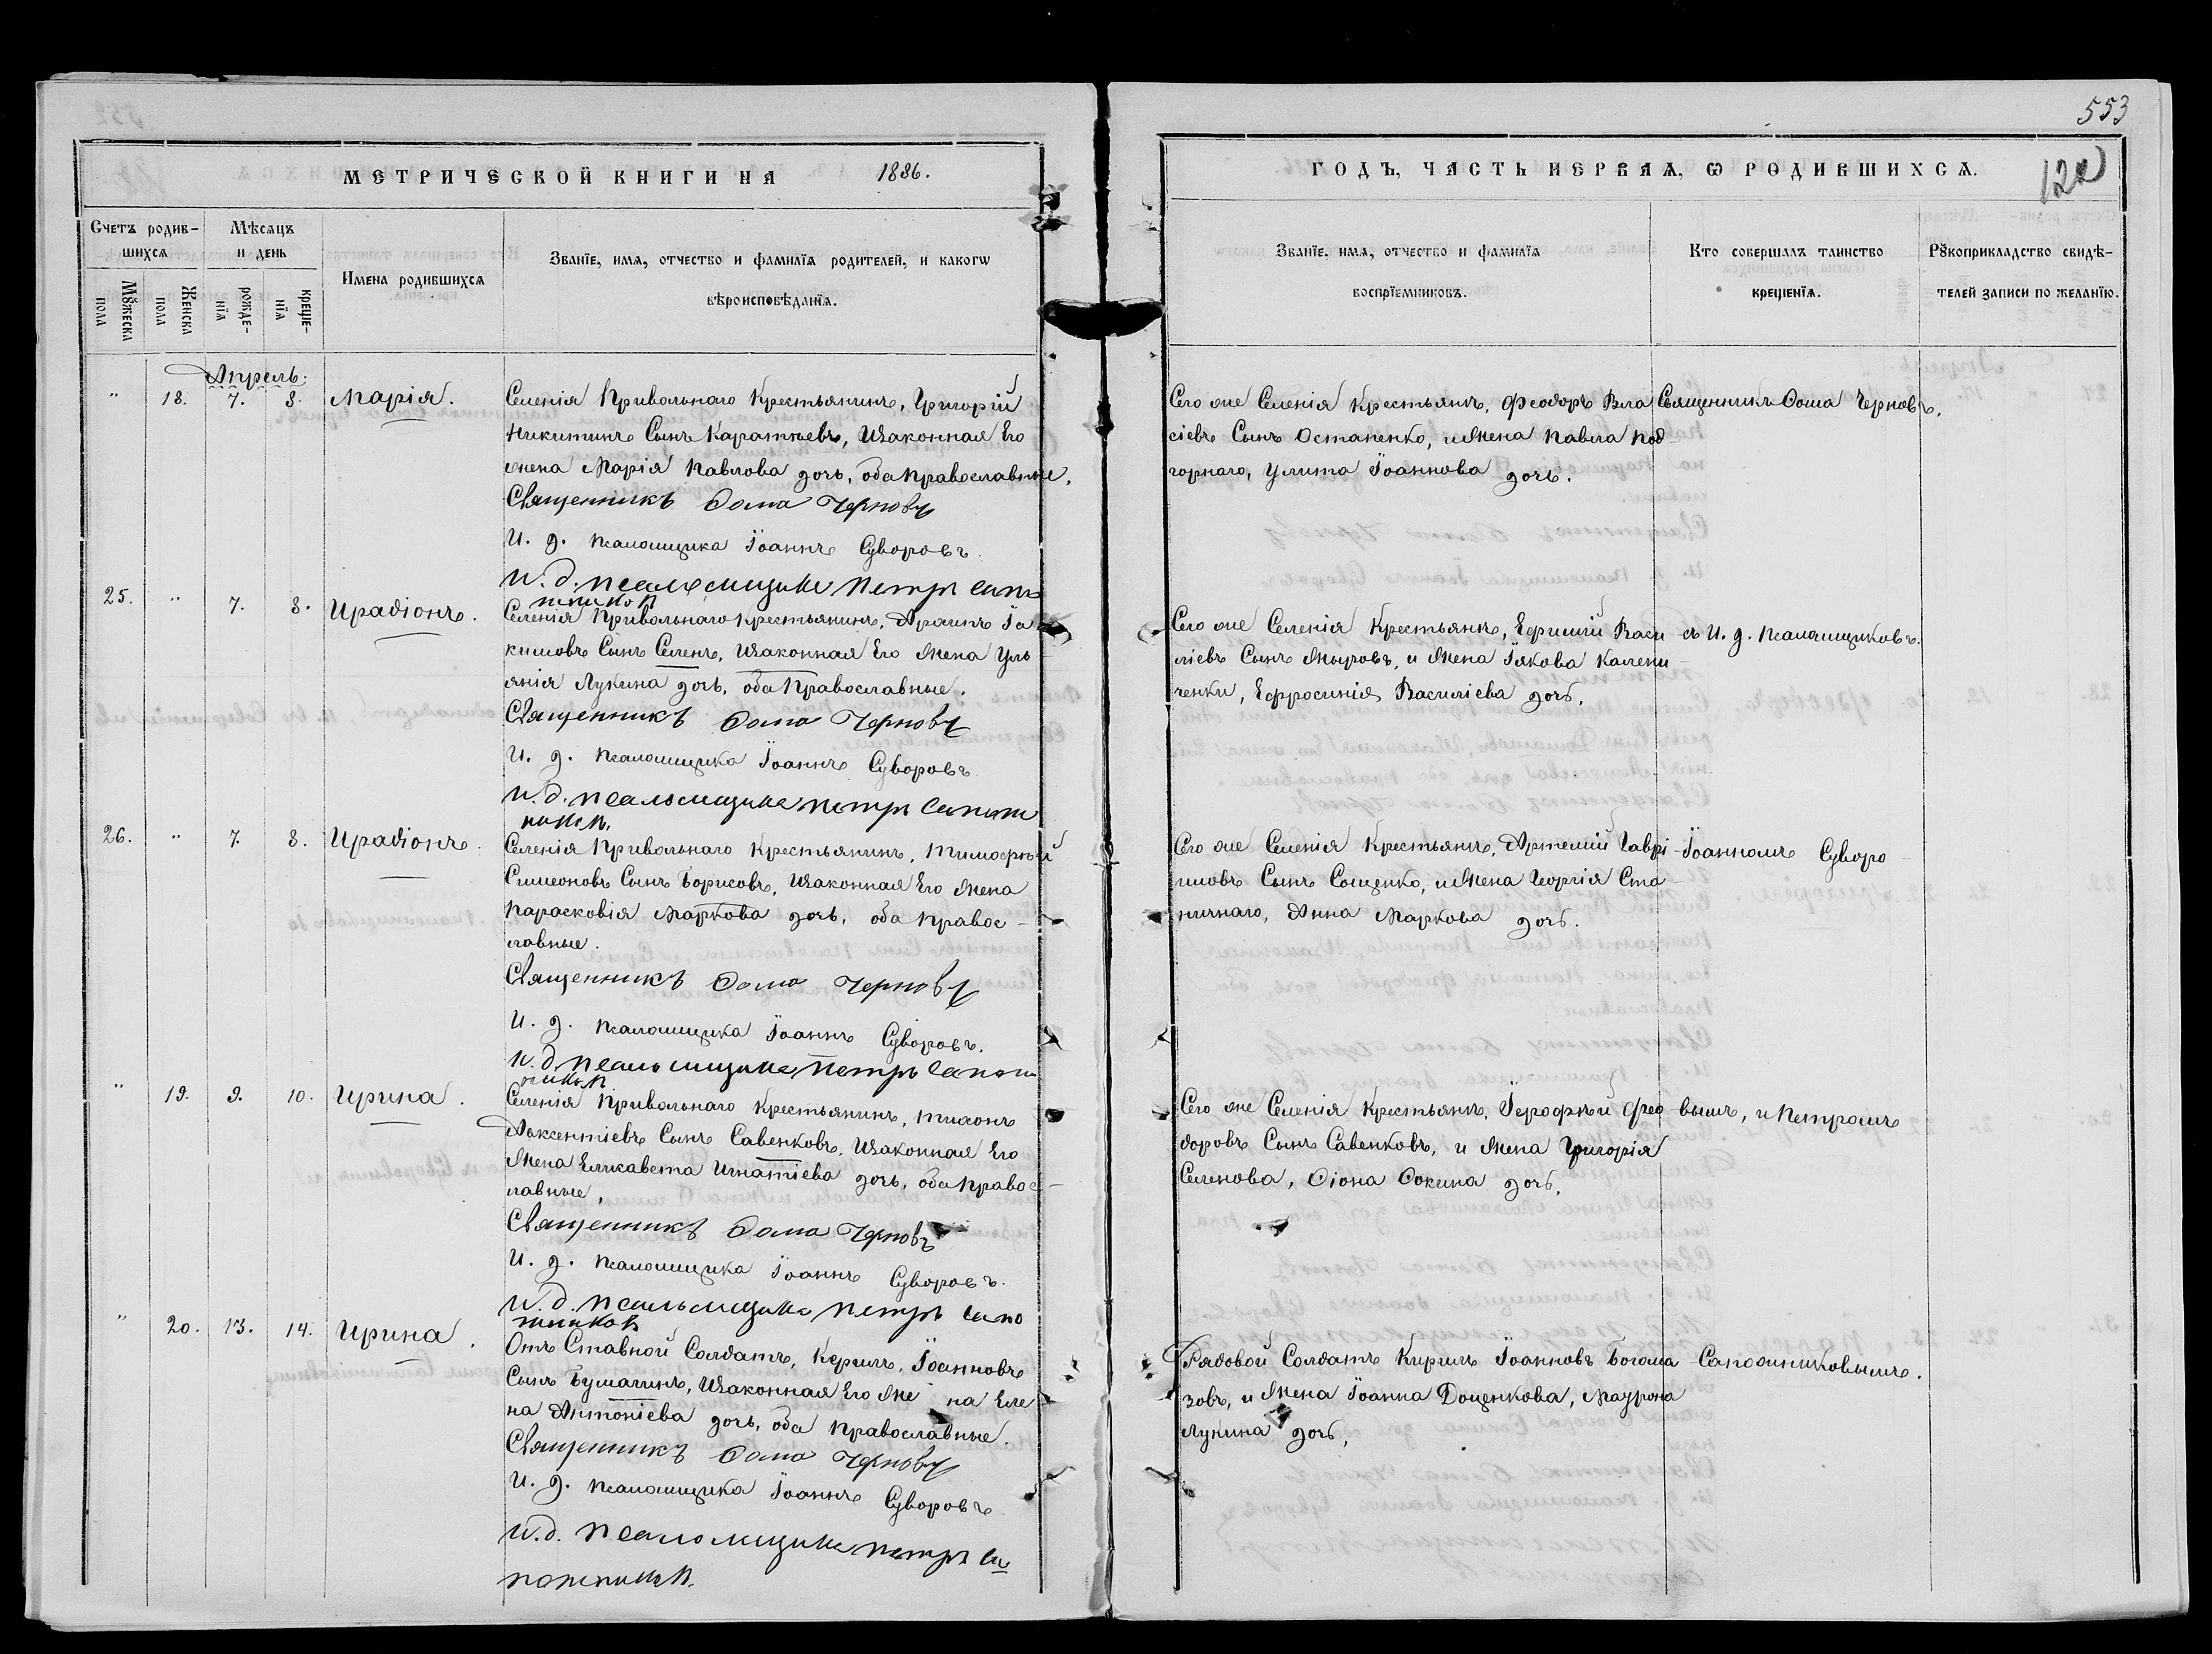 553
МЕТРИЧЕСКОЙ КНИГИ НА 1886.
Счетъ родив-
шихсѧ
Мѣсѧцъ
и день
Мꙋжеска
пола
Женска
пола
рожде-
нїѧ
креще-
нїѧ
Имена родившихсѧ
Званїе, имѧ, отчество и фамилїѧ родителей, и какогѡ
вѣроисповѣданїѧ.
Апрель.
" 18. 7. 8. Марія.
Селенія Привольнаго Крестьянинъ, Григорій
Никитинъ Сынъ Каратѣевъ, Изаконная Его
жена Марія Павлова дочь, оба Православные.
Священникъ Ѳома Черновъ
И. д. псаломщика Іоаннъ Суворовъ.
И. д. псаломщика Петръ Сапо
жников
25. " 7. 8. Иродіонъ.
Селенія Привольнаго Крестьянинъ, Іа
кимовъ Сынъ Селенъ, Изаконная Его Жена Уль
янія Лукина дочь, оба Православные.
Священникъ Ѳома Черновъ
И. д. псаломщика Іоаннъ Суворовъ
И. д. псаломщика Петръ Сапож
ников.
26. " 7. 8. Иродіонъ.
Селенія Привольнаго Крестьянинъ, Тимофѣй
Симеоновъ Сынъ Борисовъ, Изаконная Его Жена
Парасковія Маркова дочь, оба Правос-
лавные.
Священникъ Ѳома Черновъ
И. д. псаломщика Іоаннъ Суворовъ.
И. д. псаломщика Петръ Сапож
ников
" 19. 9. 10. Ирина.
Селенія Привольнаго Крестьянинъ, Тихонъ
Авксентіевъ Сынъ Савенковъ, Изаконная Его
Жена Елисавета Игнатіева дочь, оба Правос-
лавные,
Священникъ Ѳома Черновъ
И. д. псаломщика Іоаннъ Суворовъ.
И. д. псаломщика Петръ Сапо
жников
" 20. 13. 14. Ирина.
Отъ Ставной Солдатъ, Кирилъ, Іоанновъ
Сынъ Бумагинъ, Изаконная Его Же на Еле
на Антоніева дочь, оба Православные.
Священникъ Ѳома Черновъ
И. д. псаломщика Іоаннъ Суворовъ
И. д. псаломщика Петръ Са
пожников.
ГОДЪ, ЧАСТЬ ПЕРВАѦ, Ѡ РОДИВШИХСѦ.
Званїе, имѧ, отчество и фамилїѧ
воспрїемниковъ.
Кто совершалъ таинство
крещенїѧ.
Рꙋкоприкладство свидѣ-
телей записи по желанїю.
Сего же Селенія Крестьянъ, Феодоръ Вла
сіевъ Сынъ Остапенко, и Жена Павла Под-
горнаго, Улита Іоаннова дочь.
Священникъ Ѳома Черновъ,
Сего же Селенія Крестьянъ, Ефимій Васи
ліевъ Сынъ Жировъ, и Жена Іякова Калени-
ченки, Ефросинія Василіева дочь.
съ И. д. псаломщиковъ.
Сего же Селенія Крестьянъ, Артемій Гаврі
иловъ Сынъ Сощенко, и Жена Георгія Ста-
ничнаго, Анна Маркова дочь.
Іоанномъ Суворо
Сего же Селенія Крестьянъ, Іерофѣй Фео
доровъ Сынъ Савенковъ, и Жена Григорія
Селенова, Ѳіона Ѳокина дочь,
вымъ, и Петромъ
Рядовой Солдатъ Кирилъ Іоанновъ Богома
зовъ, и Жена Іоанна Доценкова, Маурона
Лукина дочь,
Сапожниковымъ.